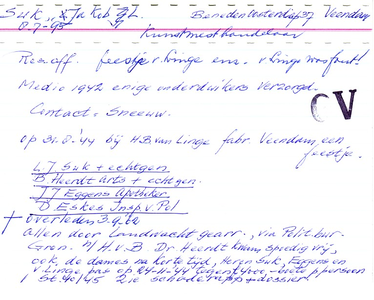 Suk, Jakob Benedenoosterdiep 37 Veendam
0-7-95 Kunstmesthandelaar
Res. off. feestje v Linge enz. v Linge was fout!
Medio 1942 enige onderduikers verzorgd.
CV
Contact: Sneeuw.
op 31.8.'44 bij H.B van Linge fabr. Veendam, een
feestje.
L.J Suk + echtgen.
B Heerdt Arts + echtgen.
J J Eggens Apotheker
D Eskes Insp. v Pol
overleden 3.9.
allen door Landwacht gearr. via Polit. bur.
Gron. n/ H.v.B. Dr Heerdt kwam spoedig vrij,
ook de dames na korte tijd, Heren Suk, Eggens en
v Linge pas op 04-11-44 tegen boete p persoon
1 St. 40/45 Zie schaderapp + dossier